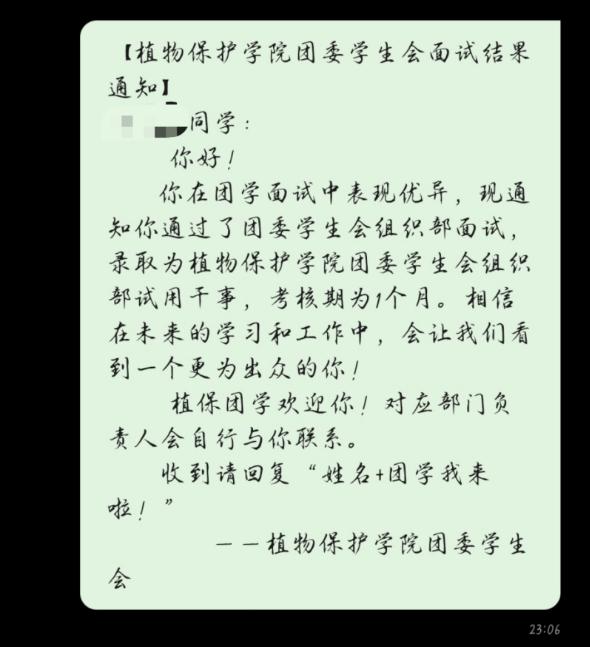 【植物保护学院团委学生会面试结果
通知】
同学：
你好！
你在团学面试中表现优异，现通
知你通过了团委学生会组织部面试，
录取为植物保护学院团委学生会组织
部试用干事，考核期为1个月。相信
在未来的学习和工作中，会让我们看
到一个更为出众的你！
植保团学欢迎你！对应部门负
责人会自行与你联系。
收到请回复“姓名+团学我来
啦！”
——植物保护学院团委学生
会
23:06